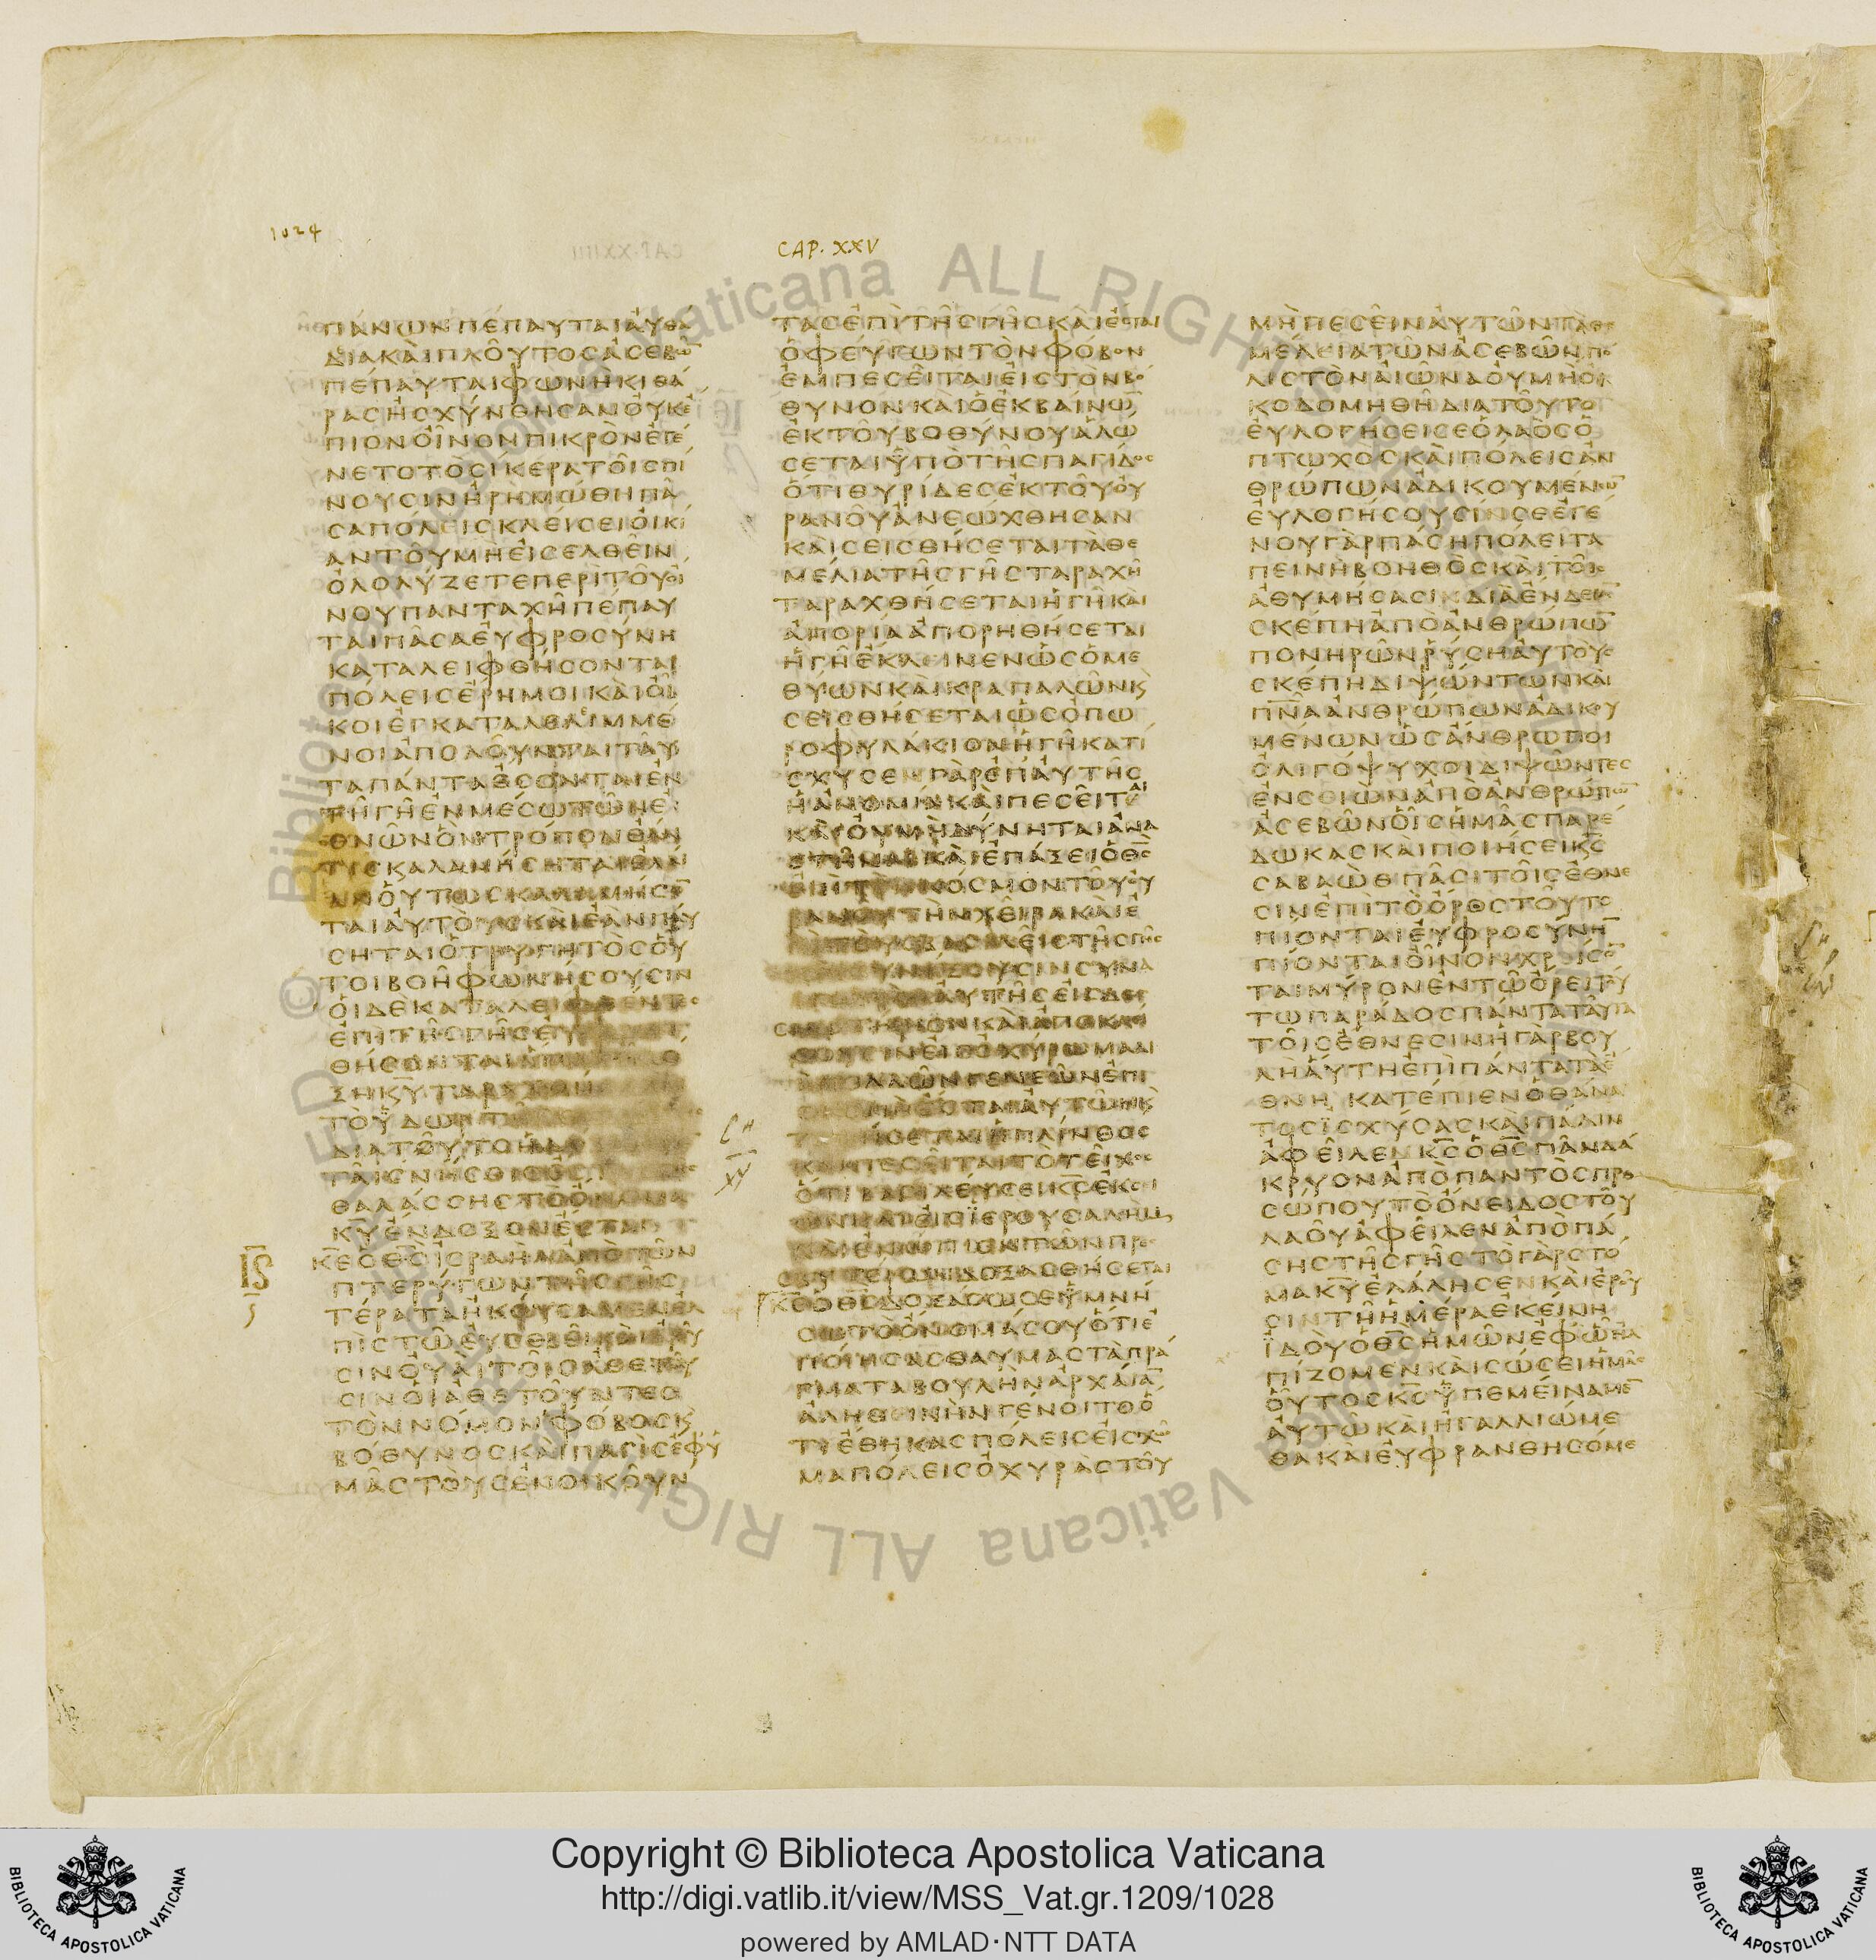 1024
CAP. XXV
ΠΑΝΩΝ ΠΕΠΑΥΤΑΙ ΑΥΘΑ
ΔΙΑ ΚΑΙ ΠΛΟΥΤΟΣ ΑΣΕΒΩ̅
ΠΕΠΑΥΤΑΙ ΦΩΝΗ ΚΙΘΑ
ΡΑΣ ΗΣΧΥΝΘΗΣΑΝ ΟΥΚ Ε
ΠΙΟΝ ΟΙΝΟΝ ΠΙΚΡΟΝ ΕΓΕ
ΝΕΤΟ ΤΟ ΣΙΚΕΡΑ ΤΟΙΣ ΠΙ
ΝΟΥΣΙΝ ΗΡΗΜΩΘΗ ΠΑ
ΣΑ ΠΟΛΕΙΣ ΚΛΕΙΣΕΙ ΟΙΚΙ
ΑΝ ΤΟΥ ΜΗ ΕΙΣΕΛΘΕΙΝ
ΟΛΟΛΥΖΕΤΕ ΠΕΡΙ ΤΟΥ ΟΙ
ΝΟΥ ΠΑΝΤΑΧΗ ΠΕΠΑΥ
ΤΑΙ ΠΑΣΑ ΕΥΦΡΟΣΥΝΗ
ΚΑΤΑΛΕΙΦΘΗΣΟΝΤΑΙ
ΠΟΛΕΙΣ ΕΡΗΜΟΙ ΚΑΙ ΟΙ
ΚΟΙ ΕΓΚΑΤΑΛΕΛΙΜΜΕ
ΝΟΙ ΑΠΟΛΟΥΝΤΑΙ ΤΑΥ
ΤΑ ΠΑΝΤΑ ΕΣΟΝΤΑΙ ΕΝ
ΤΗ ΓΗ ΕΝ ΜΕΣΩ ΤΩΝ Ε
ΘΝΩΝ ΟΝ ΤΡΟΠΟΝ ΕΑΝ
ΤΙΣ ΚΑΛΑΜΗΣΗΤΑΙ ΕΛΑΙ
ΑΝ ΟΥΤΩΣ ΚΑΛΑΜΗΣΟ̅
ΤΑΙ ΑΥΤΟΥΣ ΚΑΙ ΕΑΝ ΠΑΥ
ΣΗΤΑΙ Ο ΤΡΥΓΗΤΟΣ ΟΥ
ΤΟΙ ΒΟΗ ΦΩΝΗΣΟΥΣΙΝ
ΟΙ ΔΕ ΚΑΤΑΛΕΙΦΘΕΝΤΕΣ
ΕΠΙ ΤΗΣ ΓΗΣ ΕΥ
ΘΗΣΟΝΤΑΙ
ΞΗ Κ̅Υ̅ ΤΑΡΑΧΘΗ
ΤΟ ΥΔΩΡ
ΔΙΑ ΤΟΥΤΟ Η
ΤΑΙΣ ΝΗΣΟΙΣ
ΘΑΛΑΣΣΗΣ ΤΟ ΟΝΟΜΑ
Κ̅Υ̅ ΕΝΔΟΞΟΝ ΕΣΤΑΙ
Κ̅Ε̅ Ο Θ̅Σ̅ ΙΣΡΑΗΛ ΑΠΟ ΤΩΝ
ΠΤΕΡΥΓΩΝ ΤΗΣ ΓΗΣ
ΤΕΡΑΤΑ ΗΚΟΥΣΑΜΕΝ ΕΛ
ΠΙΣ ΤΩ ΕΥΣΕΒΕΙ ΚΑΙ ΕΡΟΥ
ΣΙΝ ΟΥΑΙ ΤΟΙΣ ΑΘΕΤΟΥ
ΣΙΝ ΟΙ ΑΘΕΤΟΥΝΤΕΣ
ΤΟΝ ΝΟΜΟΝ ΦΟΒΟΣ ΚΑΙ
ΒΟΘΥΝΟΣ ΚΑΙ ΠΑΓΙΣ ΕΦ Υ
ΜΑΣ ΤΟΥΣ ΕΝΟΙΚΟΥΝ
ΤΑΣ ΕΠΙ ΤΗΣ ΓΗΣ ΚΑΙ ΕΣΤΑΙ
Ο ΦΕΥΓΩΝ ΤΟΝ ΦΟΒΟΝ
ΕΜΠΕΣΕΙΤΑΙ ΕΙΣ ΤΟΝ ΒΟ
ΘΥΝΟΝ ΚΑΙ Ο ΕΚΒΑΙΝΩ̅
ΕΚ ΤΟΥ ΒΟΘΥΝΟΥ ΑΛΩ
ΣΕΤΑΙ ΥΠΟ ΤΗΣ ΠΑΓΙΔΟΣ
ΟΤΙ ΘΥΡΙΔΕΣ ΕΚ ΤΟΥ ΟΥ
ΡΑΝΟΥ ΑΝΕΩΧΘΗΣΑΝ
ΚΑΙ ΣΕΙΣΘΗΣΕΤΑΙ ΤΑ ΘΕ
ΜΕΛΙΑ ΤΗΣ ΓΗΣ ΤΑΡΑΧΗ
ΤΑΡΑΧΘΗΣΕΤΑΙ Η ΓΗ ΚΑΙ
ΑΠΟΡΙΑ ΑΠΟΡΗΘΗΣΕΤΑΙ
Η ΓΗ ΕΚΛΕΙΝΕΝ ΩΣ Ο ΜΕ
ΘΥΩΝ ΚΑΙ ΚΡΑΙΠΑΛΩΝ Κ
ΣΕΙΣΘΗΣΕΤΑΙ ΩΣ ΟΠΩ
ΡΟΦΥΛΑΚΙΟΝ Η ΓΗ ΚΑΤΙ
ΣΧΥΣΕΝ ΓΑΡ ΕΠ ΑΥΤΗΣ
Η ΑΝΟΜΙΑ ΚΑΙ ΠΕΣΕΙΤΑΙ
ΚΑΙ ΟΥ ΜΗ ΔΥΝΗΤΑΙ ΑΝΑ
ΣΤΗΝΑΙ ΚΑΙ ΕΠΑΞΕΙ Ο Θ̅Σ̅
ΕΠΙ ΤΟΝ ΚΟΣΜΟΝ ΤΟΥ ΟΥ
ΡΑΝΟΥ ΤΗΝ ΧΕΙΡΑ ΚΑΙ Ε
ΠΙ ΤΟΥΣ ΒΑΣΙΛΕΙΣ ΤΗΣ ΓΗΣ
ΣΥΝΑ
ΑΥΤΗΣ ΕΙΣ ΔΕ
ΣΜΩΤΗΡΙΟΝ ΚΑΙ ΑΠΟΚΛΕΙ
ΣΟΥΣΙΝ ΕΙΣ ΟΧΥΡΩΜΑ ΔΙ
Α ΠΟΛΛΩΝ ΓΕΝΕΩΝ ΕΠΙ
ΑΥΤΩΝ Κ
Η ΠΛΙΝΘΟΣ
ΚΑΙ ΠΕΣΕΙΤΑΙ ΤΟ ΤΕΙΧΟΣ
ΟΤΙ ΒΑΣΙΛΕΥΣΕΙ Κ̅Σ̅ ΕΚ ΣΕΙ
ΩΝ ΚΑΙ ΕΙΣ ΙΕΡΟΥΣΑΛΗΜ
ΚΑΙ ΕΝΩΠΙΟΝ ΤΩΝ ΠΡΕ
ΣΒΥΤΕΡΩΝ ΔΟΞΑΣΘΗΣΕΤΑΙ
Κ̅Ε̅ Ο Θ̅Σ̅ ΔΟΞΑΣΩ ΣΕ ΥΜΝΗ
ΣΩ ΤΟ ΟΝΟΜΑ ΣΟΥ ΟΤΙ Ε
ΠΟΙΗΣΑΣ ΘΑΥΜΑΣΤΑ ΠΡΑ
ΓΜΑΤΑ ΒΟΥΛΗΝ ΑΡΧΑΙΑ̅
ΑΛΗΘΙΝΗΝ ΓΕΝΟΙΤΟ Ο
ΤΙ ΕΘΗΚΑΣ ΠΟΛΕΙΣ ΕΙΣ ΧΩ
ΜΑ ΠΟΛΕΙΣ ΟΧΥΡΑΣ ΤΟΥ
ΜΗ ΠΕΣΕΙΝ ΑΥΤΩΝ ΤΑ ΘΕ
ΜΕΛΕΙΑ ΤΩΝ ΑΣΕΒΩΝ ΠΟ
ΛΙΣ ΤΟΝ ΑΙΩΝΑ ΟΥ ΜΗ ΟΙ
ΚΟΔΟΜΗΘΗ ΔΙΑ ΤΟΥΤΟ
ΕΥΛΟΓΗΣΕΙ ΣΕ Ο ΛΑΟΣ Ο
ΠΤΩΧΟΣ ΚΑΙ ΠΟΛΕΙΣ ΑΝ
ΘΡΩΠΩΝ ΑΔΙΚΟΥΜΕΝΩ̅
ΕΥΛΟΓΗΣΟΥΣΙΝ ΣΕ ΕΓΕ
ΝΟΥ ΓΑΡ ΠΑΣΗ ΠΟΛΕΙ ΤΑ
ΠΕΙΝΗ ΒΟΗΘΟΣ ΚΑΙ ΤΟΙΣ
ΑΘΥΜΗΣΑΣΙ ΔΙΑ ΕΝΔΕΙΑ̅
ΣΚΕΠΗ ΑΠΟ ΑΝΘΡΩΠΩ̅
ΠΟΝΗΡΩΝ ΡΥΣΗ ΑΥΤΟΥΣ
ΣΚΕΠΗ ΔΙΨΩΝΤΩΝ ΚΑΙ
Π̅Ν̅Α̅ ΑΝΘΡΩΠΩΝ ΑΔΙΚΟΥ
ΜΕΝΩΝ ΩΣ ΑΝΘΡΩΠΟΙ
ΟΛΙΓΟΨΥΧΟΙ ΔΙΨΩΝΤΕΣ
ΕΝ ΣΕΙΩΝ ΑΠΟ ΑΝΘΡΩΠΩ̅
ΑΣΕΒΩΝ ΟΙΣ ΗΜΑΣ ΠΑΡΕ
ΔΩΚΑΣ ΚΑΙ ΠΟΙΗΣΕΙ Κ̅Σ̅
ΣΑΒΑΩΘ ΠΑΣΙ ΤΟΙΣ ΕΘΝΕ
ΣΙΝ ΕΠΙ ΤΟ ΟΡΟΣ ΤΟΥΤΟ
ΠΙΟΝΤΑΙ ΕΥΦΡΟΣΥΝΗ̅
ΠΙΟΝΤΑΙ ΟΙΝΟΝ ΧΡΙΣΟ̅
ΤΑΙ ΜΥΡΟΝ ΕΝ ΤΩ ΟΡΕΙ ΤΟΥ
ΤΩ ΠΑΡΑΔΟΣ ΠΑΝΤΑ ΤΑΥΤΑ
ΤΟΙΣ ΕΘΝΕΣΙΝ Η ΓΑΡ ΒΟΥ
ΛΗ ΑΥΤΗ ΕΠΙ ΠΑΝΤΑ ΤΑ Ε
ΘΝΗ ΚΑΤΕΠΙΕΝ Ο ΘΑΝΑ
ΤΟΣ ΙΣΧΥΣΑΣ ΚΑΙ ΠΑΛΙΝ
ΑΦΕΙΛΕΝ Κ̅Σ̅ Ο Θ̅Σ̅ ΠΑΝ ΔΑ
ΚΡΥΟΝ ΑΠΟ ΠΑΝΤΟΣ ΠΡΟ
ΣΩΠΟΥ ΤΟ ΟΝΕΙΔΟΣ ΤΟΥ
ΛΑΟΥ ΑΦΕΙΛΕΝ ΑΠΟ ΠΑ
ΣΗΣ ΤΗΣ ΓΗΣ ΤΟ ΓΑΡ ΣΤΟ
ΜΑ Κ̅Υ̅ ΕΛΑΛΗΣΕΝ ΚΑΙ ΕΡΟΥ
ΣΙΝ ΤΗ ΗΜΕΡΑ ΕΚΕΙΝΗ
ΙΔΟΥ Ο Θ̅Σ̅ ΗΜΩΝ ΕΦ Ω ΗΛ
ΠΙΖΟΜΕΝ ΚΑΙ ΣΩΣΕΙ ΗΜΑΣ
ΟΥΤΟΣ Κ̅Σ̅ ΥΠΕΜΕΙΝΑΜΕ̅
ΑΥΤΩ ΚΑΙ ΗΓΑΛΛΙΩΜΕ
ΘΑ ΚΑΙ ΕΥΦΡΑΝΘΗΣΟΜΕ
Copyright © Biblioteca Apostolica Vaticana
http://digi.vatlib.it/view/MSS_Vat.gr.1209/1028
powered by AMLAD·NTT DATA
BIBLIOTECA APOSTOLICA VATICANA
BIBLIOTECA APOSTOLICA VATICANA